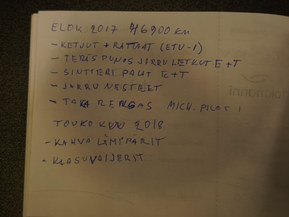 ELOK 2017 46900 km
- KETJUT + RATTAAT (ETU-1)
- TERÄSPUNOS JARRULETKUT E+T
- SINTTERI PALAT E+T
- JARRUNESTEET
- TAKARENGAS MICH. PILOT
TOUKOKUU 2018
- KAHVALÄMPPÄRIT